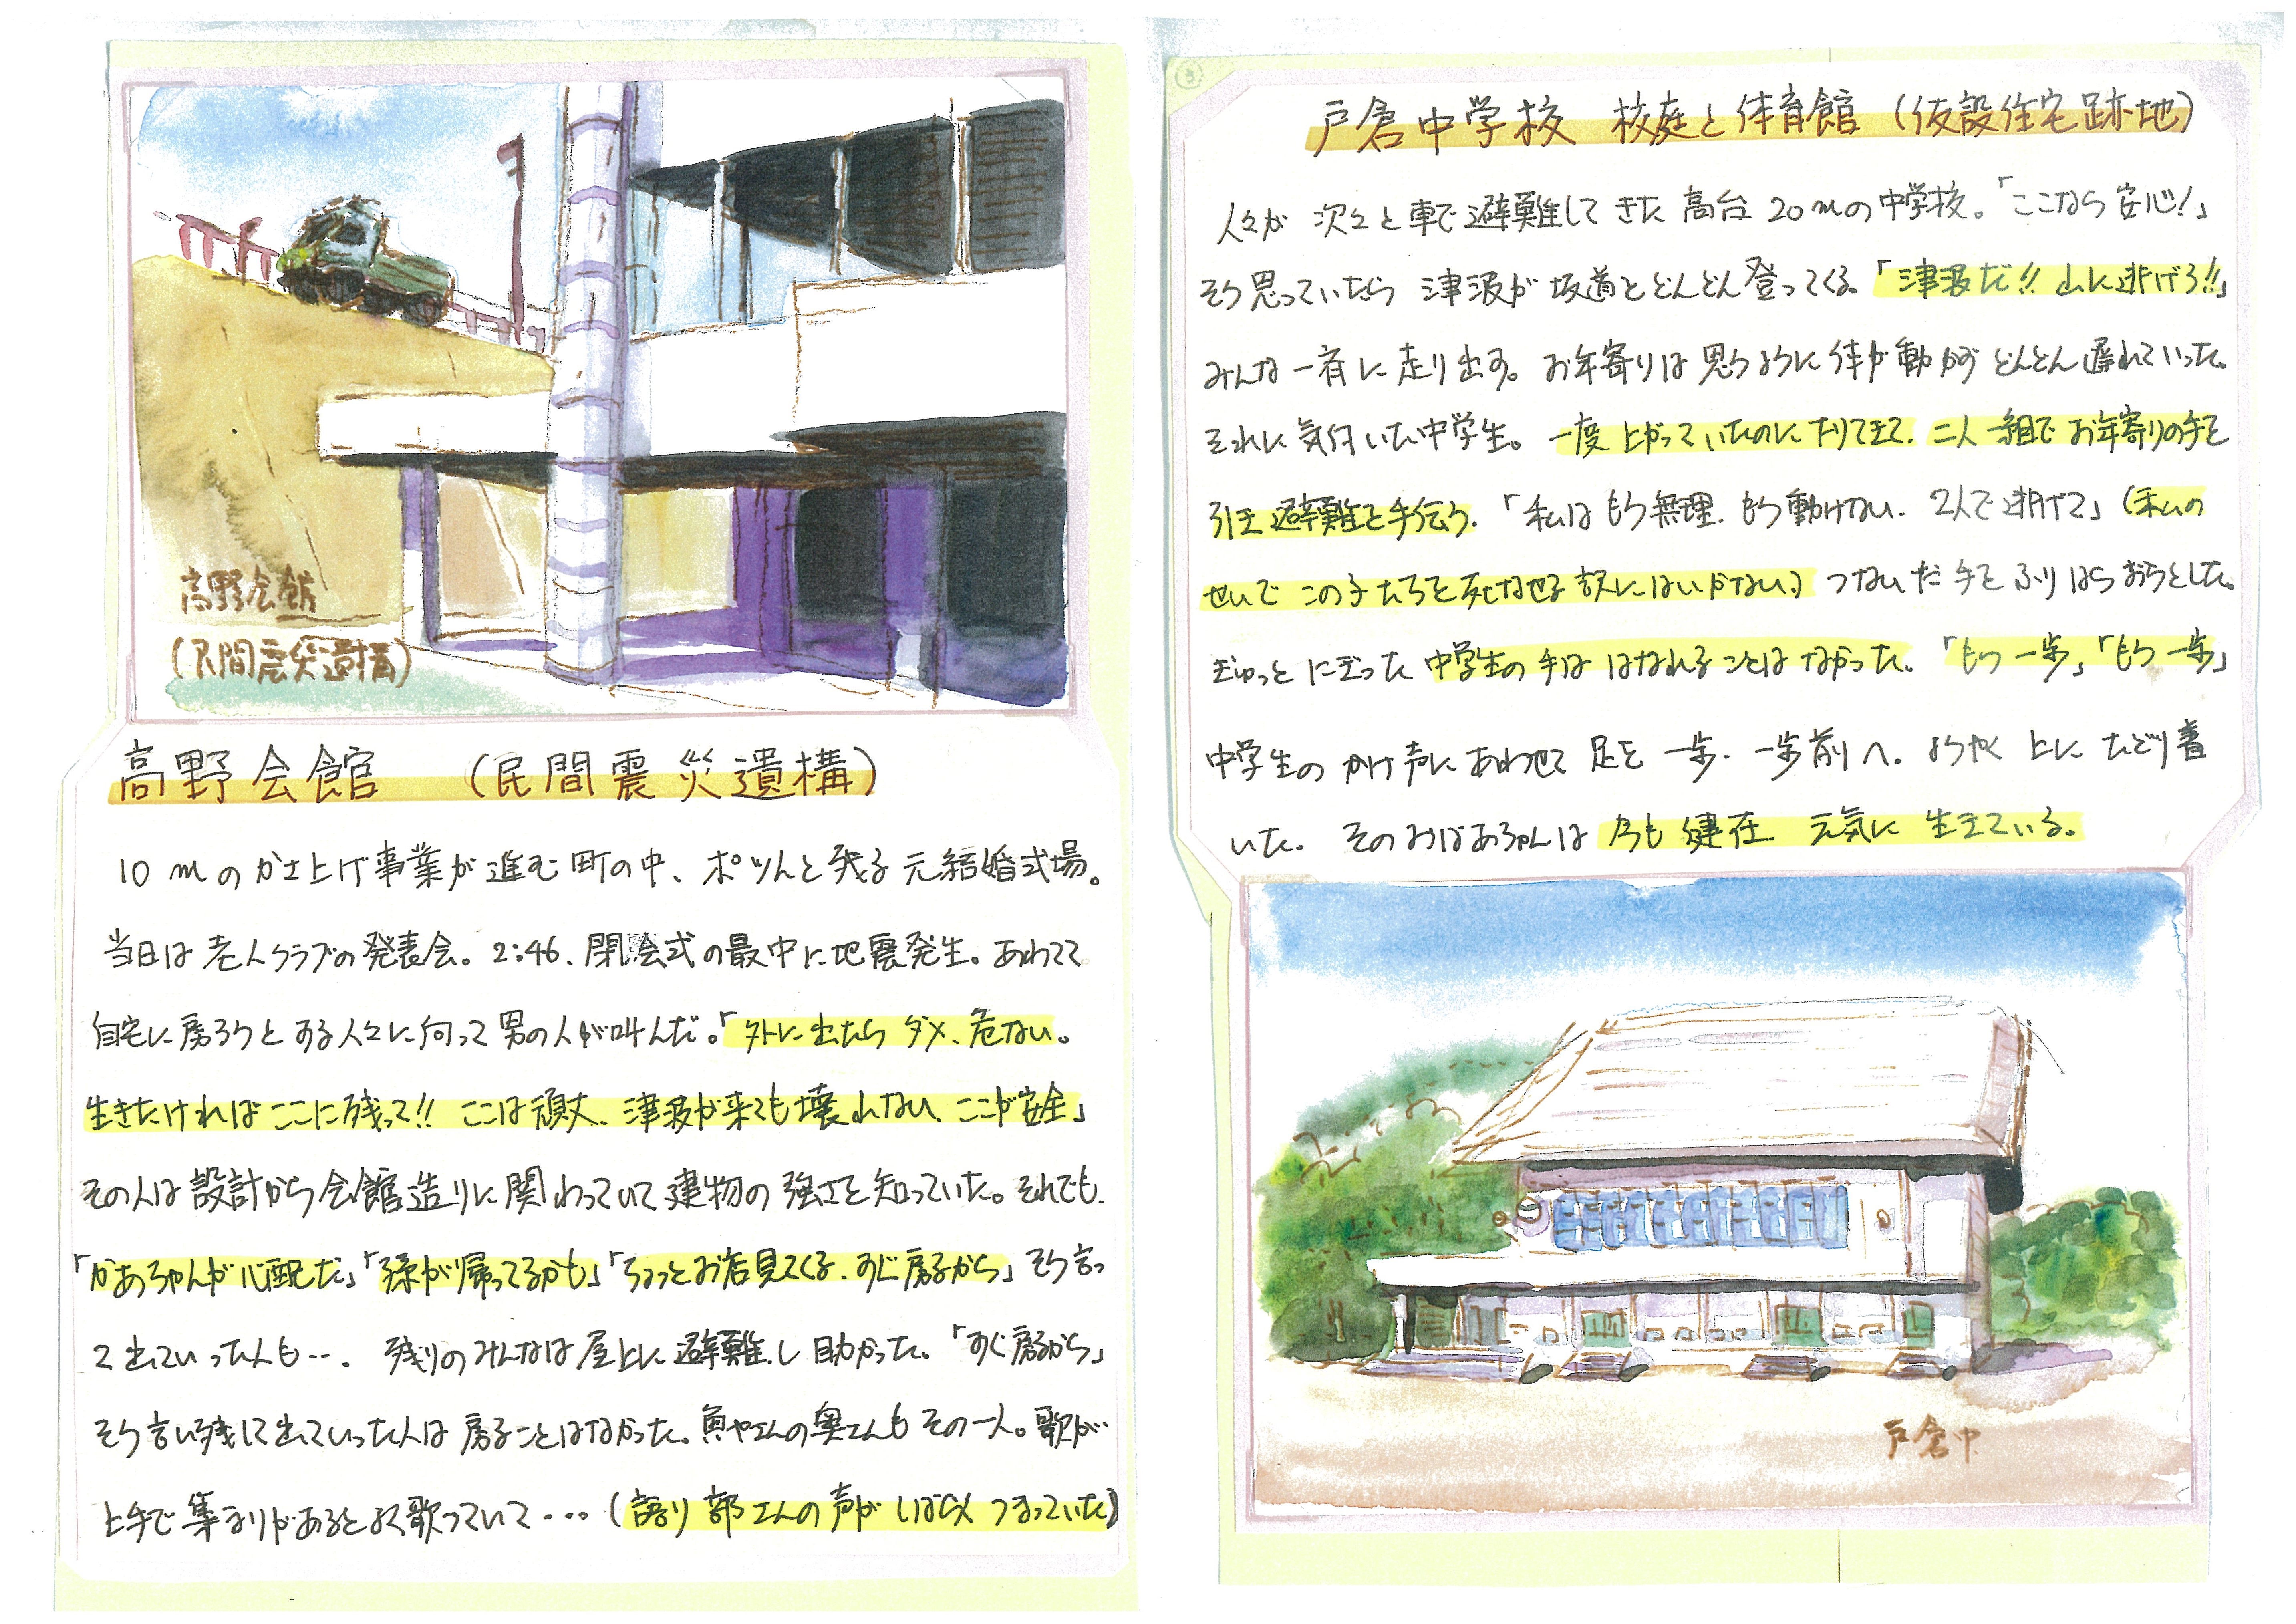 高野会館
(民間震災遺構)
高野会館 (民間震災遺構)
10mのかさ上げ事業が進む町の中、ポツんと残る元結婚式場。
当日は老人クラブの発表会。2:46、閉会式の最中に地震発生。あわてて
自宅に戻ろうとする人々に向って男の人が叫んだ。「外に出たらダメ、危ない。
生きたければここに残って!! ここは頑丈、津波が来ても壊れない、ここが安全」
その人は設計から会館造りに関わっていて建物の強さを知っていた。それでも、
「かあちゃんが心配だ」「孫が帰ってるかも」「ちょっとお店見てくる、すぐ戻るから」そう言っ
て出ていった人も…。 残りのみんなは屋上に避難し助かった。「すぐ戻るから」
そう言い残して出ていった人は戻ることはなかった。魚やさんの奥さんもその一人。歌が
上手で集まりがあるとよく歌っていて…(語り部さんの声がしばらくつまっていた)
③
戸倉中学校 校庭と体育館(仮設住宅跡地)
人々が次々と車で避難してきた高台20mの中学校。「ここなら安心!」
そう思っていたら津波が坂道をどんどん登ってくる。「津波だ!! 山に逃げろ!!」
みんな一斉に走り出す。お年寄りは思うように体が動かずどんどん遅れていった。
それに気付いた中学生。一度上がっていたのに下りてきて、二人一組でお年寄りの手を
引き避難を手伝う。「私はもう無理、もう動けない、2人で逃げて」(私の
せいでこの子たちを死なせる訳にはいかない。)つないだ手をふりはらおうとした。
ぎゅっとにぎった中学生の手ははなれることはなかった。「もう一歩」「もう一歩」
中学生のかけ声にあわせて足を一歩、一歩前へ。ようやく上にたどり着
いた。そのおばあちゃんは今も健在 元気に生きている。
戸倉中